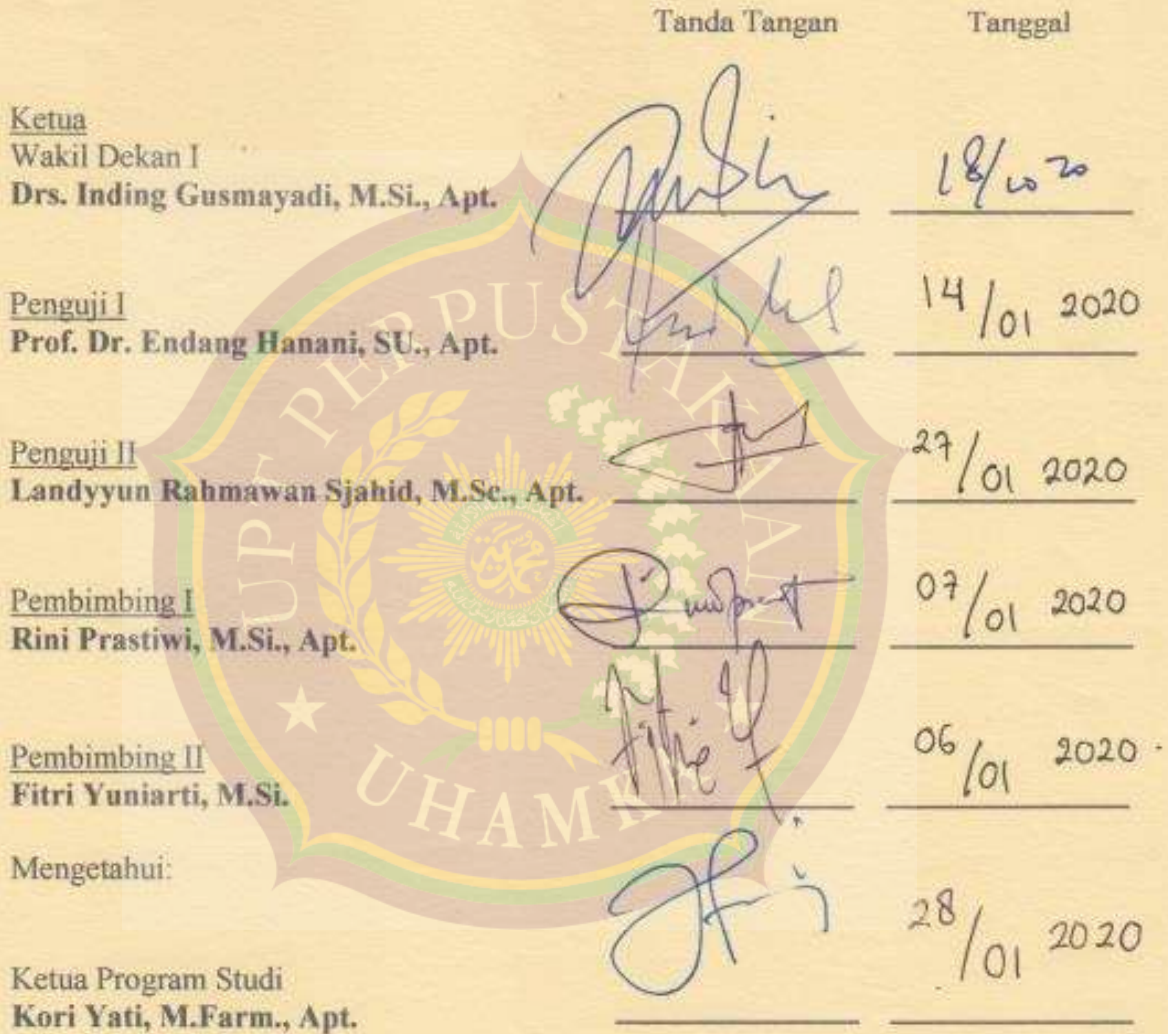 Tanda Tangan Tanggal
Ketua
Wakil Dekan I
Drs. Inding Gusmayadi, M.Si., Apt.
Penguji I
Prof. Dr. Endang Hanani, SU., Apt. 14/01 2020
Penguji II
Landyyun Rahmawan Sjahid, M.Sc., Apt. 27/01 2020
Pembimbing I
Rini Prastiwi, M.Si., Apt. 07/01 2020
Pembimbing II
Fitri Yuniarti, M.Si. 06/01 2020
Mengetahui:
28/01 2020
Ketua Program Studi
Kori Yati, M.Farm., Apt.
UPT PERPUSTAKAAN
UHAMKA